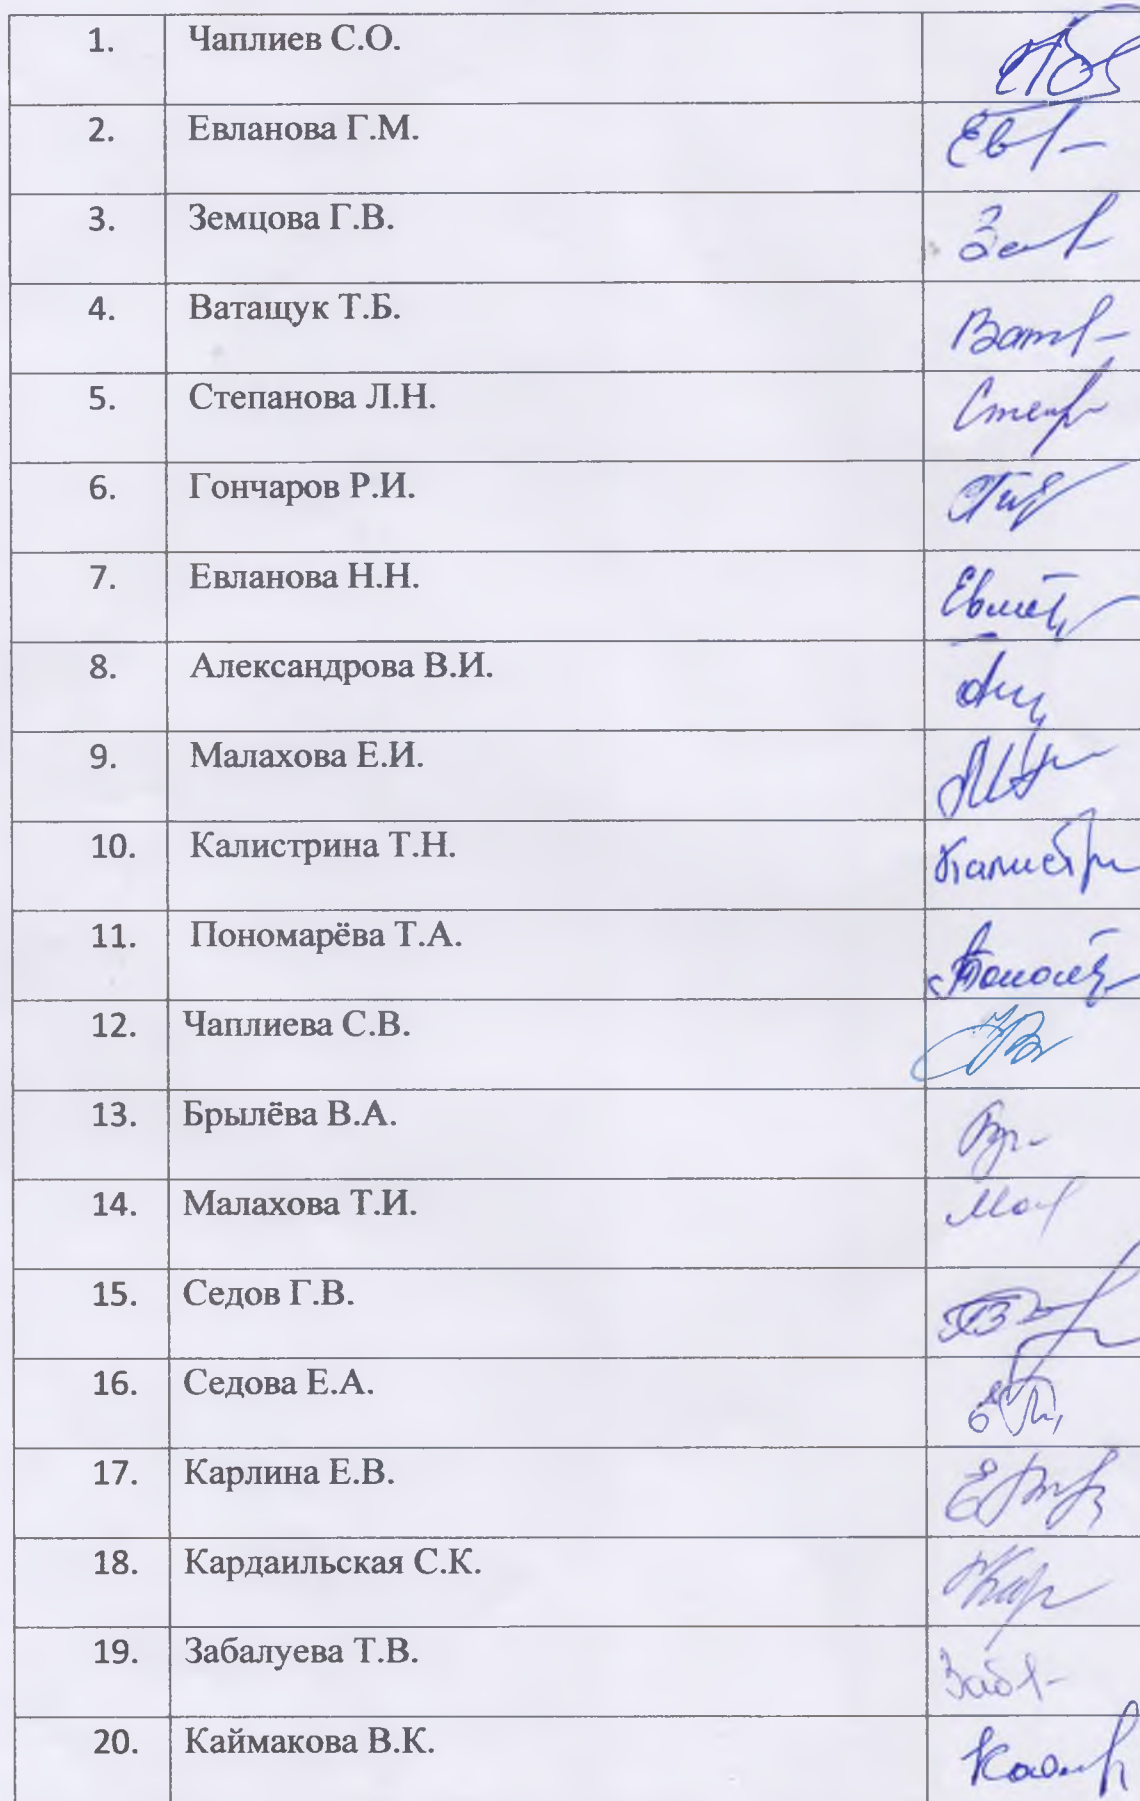 1. Чаплиев С.О.
2. Евланова Г.М.
3. Земцова Г.В.
4. Ватащук Т.Б.
5. Степанова Л.Н.
6. Гончаров Р.И.
7. Евланова Н.Н.
8. Александрова В.И.
9. Малахова Е.И.
10. Калистрина Т.Н.
11. Пономарёва Т.А.
12. Чаплиева С.В.
13. Брылёва В.А.
14. Малахова Т.И.
15. Седов Г.В.
16. Седова Е.А.
17. Карлина Е.В.
18. Кардаильская С.К.
19. Забалуева Т.В.
20. Каймакова В.К.